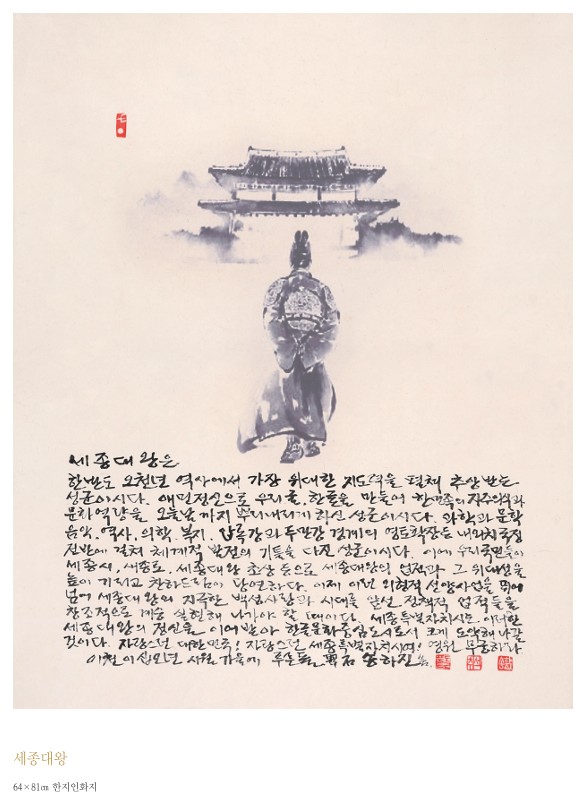 세종대왕은
한반도 오천년 역사에서 가장 위대한 지도력을 펼쳐 추앙받는
성군이시다. 애민정신으로 우리글, 한글을 만들어 한민족의 자주의식과
문화역량을 오늘날까지 뿌리내리게 하신 성군이시다. 과학과 문학
음악, 역사, 의학, 복지, 압록강과 두만강 경계의 영토확장등 내외치국정
전반에 걸쳐 체계적 발전의 기틀을 다진 성군이시다. 이에 우리국민들이
세종시, 세종로, 세종대왕 초상 등으로 세종대왕의 업적과 그 위대성을
높이 기리고 찬하드림이 당연하다. 이제 이런 외형적 선양사업을 뛰어
넘어 세종대왕의 지극한 백성사랑과 시대를 앞선 정책적 업적들을
창조적으로 계승 실현해 나가야 할 때이다. 세종특별자치시는 이러한
세종대왕의 정신을 이어받아 한글문화중심도시로서 크게 도약해 나갈
것이다. 자랑스런 대한민국! 자랑스런 세종특별자치시여! 영원 무궁하라
이천이십오년 가을에 푸른돌 송하진
세종대왕
64×81㎝ 한지인화지